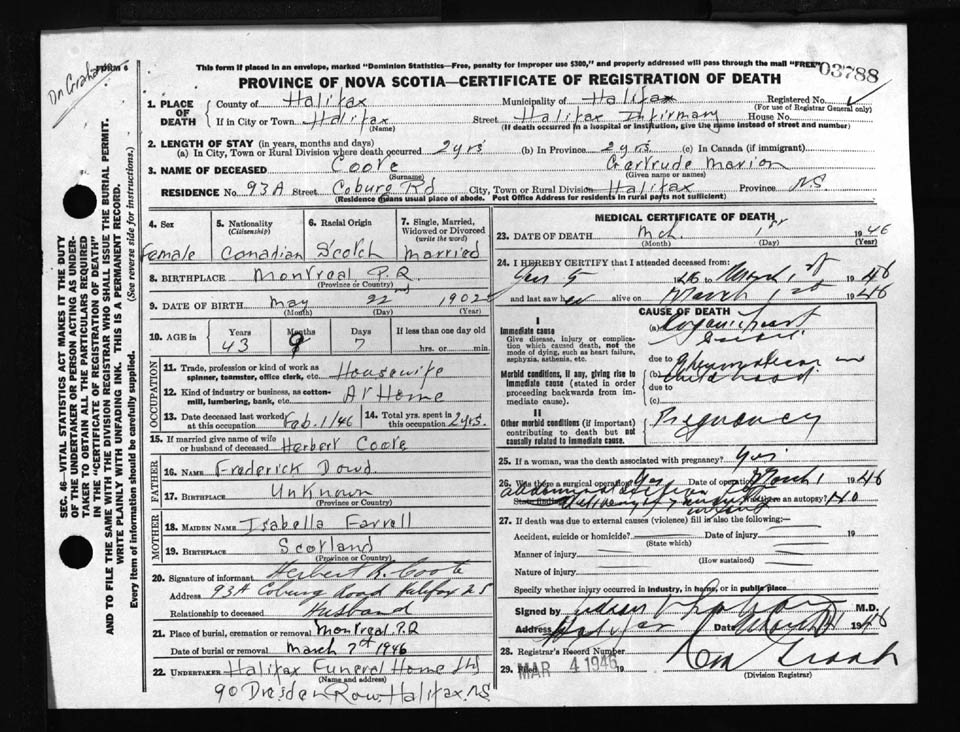 Dr. Graham
FORM 6
This form if placed in an envelope, marked "Dominion Statistics—Free, penalty for improper use $300," and properly addressed will pass through the mail "FREE"
03788
PROVINCE OF NOVA SCOTIA—CERTIFICATE OF REGISTRATION OF DEATH
1. PLACE OF DEATH
County of Halifax Municipality of Halifax Registered No.
(For use of Registrar General only)
If in City or Town Halifax Street Halifax Infirmary House No.
(Name) (If death occurred in a hospital or institution, give the name instead of street and number)
2. LENGTH OF STAY (in years, months and days)
(a) In City, Town or Rural Division where death occurred 2 yrs (b) In Province 2 yrs (c) In Canada (if immigrant)
3. NAME OF DECEASED Coote Gertrude Marion
(Surname) (Given name or names)
RESIDENCE No. 93A Street Coburg Rd City, Town or Rural Division Halifax Province N.S.
(Residence means usual place of abode. Post Office Address for residents in rural parts not sufficient)
SEC. 46—VITAL STATISTICS ACT MAKES IT THE DUTY
OF THE UNDERTAKER OR PERSON ACTING AS UNDER-
TAKER TO OBTAIN ALL THE PARTICULARS REQUIRED
IN THE "CERTIFICATE OF REGISTRATION OF DEATH"
AND TO FILE THE SAME WITH THE DIVISION REGISTRAR WHO SHALL ISSUE THE BURIAL PERMIT.
WRITE PLAINLY WITH UNFADING INK. THIS IS A PERMANENT RECORD.
Every item of information should be carefully supplied. (See reverse side for instructions.)
4. Sex
Female
5. Nationality
(Citizenship)
Canadian
6. Racial Origin
Scotch
7. Single, Married, Widowed or Divorced
(write the word)
Married
8. BIRTHPLACE Montreal P.Q
(Province or Country)
9. DATE OF BIRTH May 22nd 1902
(Month) (Day) (Year)
10. AGE in Years Months Days If less than one day old
43 9 7 hrs. or min.
OCCUPATION
11. Trade, profession or kind of work as
spinner, teamster, office clerk, etc. Housewife
12. Kind of industry or business, as cotton-
mill, lumbering, bank, etc. At Home
13. Date deceased last worked
at this occupation Feb. 1/46
14. Total yrs. spent in
this occupation 2 yrs.
15. If married give name of wife
or husband of deceased Herbert Coote
FATHER
16. NAME Frederick Dowd
17. BIRTHPLACE Unknown
MOTHER
18. MAIDEN NAME Isabella Farrell
19. BIRTHPLACE Scotland
(Province or Country)
20. Signature of informant Herbert K. Coote
Address 93A Coburg Road Halifax N S
Relationship to deceased Husband
21. Place of burial, cremation or removal Montreal P.Q
Date of burial or removal March 2nd 1946
22. UNDERTAKER Halifax Funeral Home Ltd
(Name and address)
90 Dresden Row, Halifax, N.S
MEDICAL CERTIFICATE OF DEATH
23. DATE OF DEATH Mch. 1st 1946
(Month) (Day) (Year)
24. I HEREBY CERTIFY that I attended deceased from:
to March 1st 1946
and last saw her alive on March 1st 1946
CAUSE OF DEATH
I
Immediate cause
Give disease, injury or complica-
tion which caused death, not the
mode of dying, such as heart failure,
asphyxia, asthenia, etc.
(a) Organic heart
disease
due to
Morbid conditions, if any, giving rise to
immediate cause (stated in order
proceeding backwards from im-
mediate cause).
(b) Rheumatism in
childhood
due to
(c)
II
Other morbid conditions (if important)
contributing to death but not
causally related to immediate cause.
Pregnancy
25. If a woman, was the death associated with pregnancy? Yes
26. Was there a surgical operation? Yes Date of operation March 1 1946
State findings Was there an autopsy? No
27. If death was due to external causes (violence) fill in also the following:—
Accident, suicide or homicide? Date of injury 19
(State which)
Manner of injury
(How sustained)
Nature of injury
Specify whether injury occurred in industry, in home, or in public place
Signed by M.D.
Address Halifax Date March 1 1946
28. Registrar's Record Number
29. Filed MAR 4 1946 19
(Division Registrar)